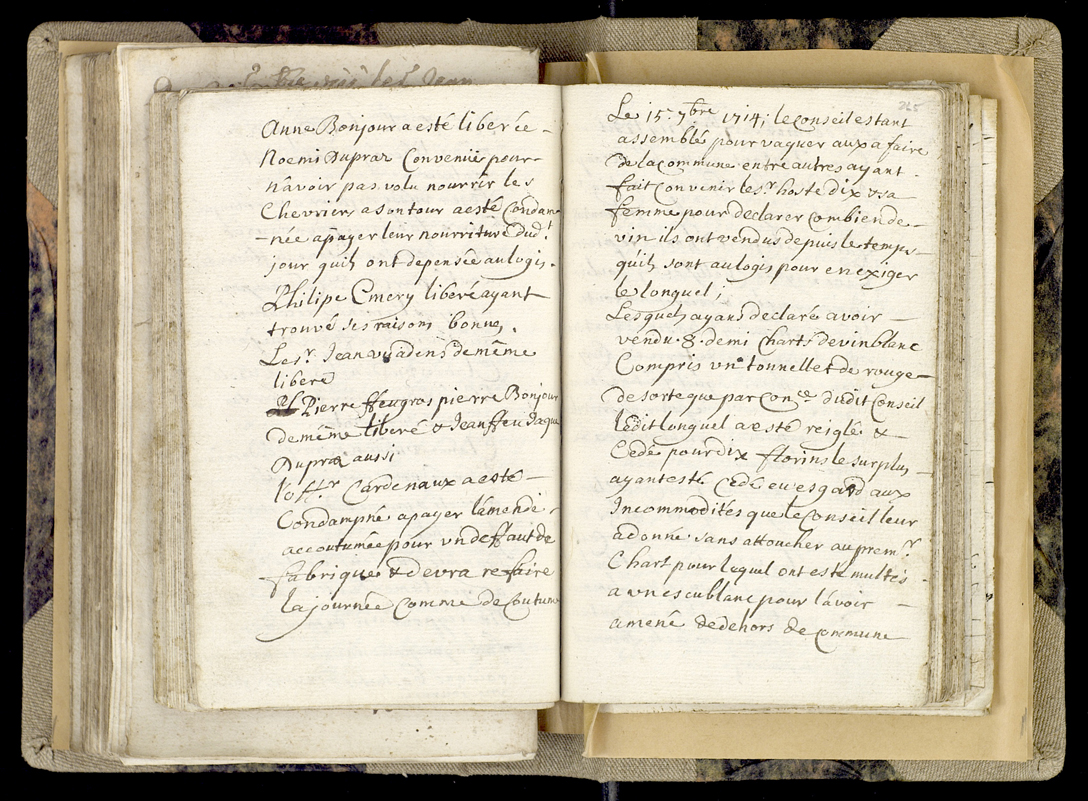 Anne Bonjour a esté liberée
Noemi Dupraz Convenüe pour
n'avoir pas volu nourrir les
Chevriers a son tour a esté Condam
née a payer leur nourriture dud.t
jour quils ont depensée au logis.
Philipe Emery liberé ayant
trouvé ses raisons bonnes.
Le s.r Jean de même
liberé
Pierre ffeu gros pierre Bonjour
de même liberé & Jean ffeu Jaque
Dupraz aussi
Cardenaux a esté
Condampné a payer l'amende
accoutumée pour un deffaut de
fabrique & devra refaire
la journée Comme de Coutume
265
Le 15.e 7bre 1714; le Conseil estant
assemblé pour vaquer aux afaire
de la Commune entre autres ayant
fait Convenir le s.r hoste dix & sa
femme pour declarer Combien de
vin ils ont vendus depuis le temps
quils sont au logis pour en exiger
le longuel;
Lesquels ayans declaré avoir
vendu 8. demi Charts de vin blanc
Compris un tonnellet de rouge
de sorte que par Con.ce dudit Conseil
ledit longuel a esté reiglé &
Cedé pour dix florins le surplus
ayant esté Cedé eu esgard aux
Incommodités que le Conseil leur
a donné sans attoucher au prem.r
Chart pour lequel ont esté multés
a un escu blanc pour l'avoir
amené de dehors de Commune